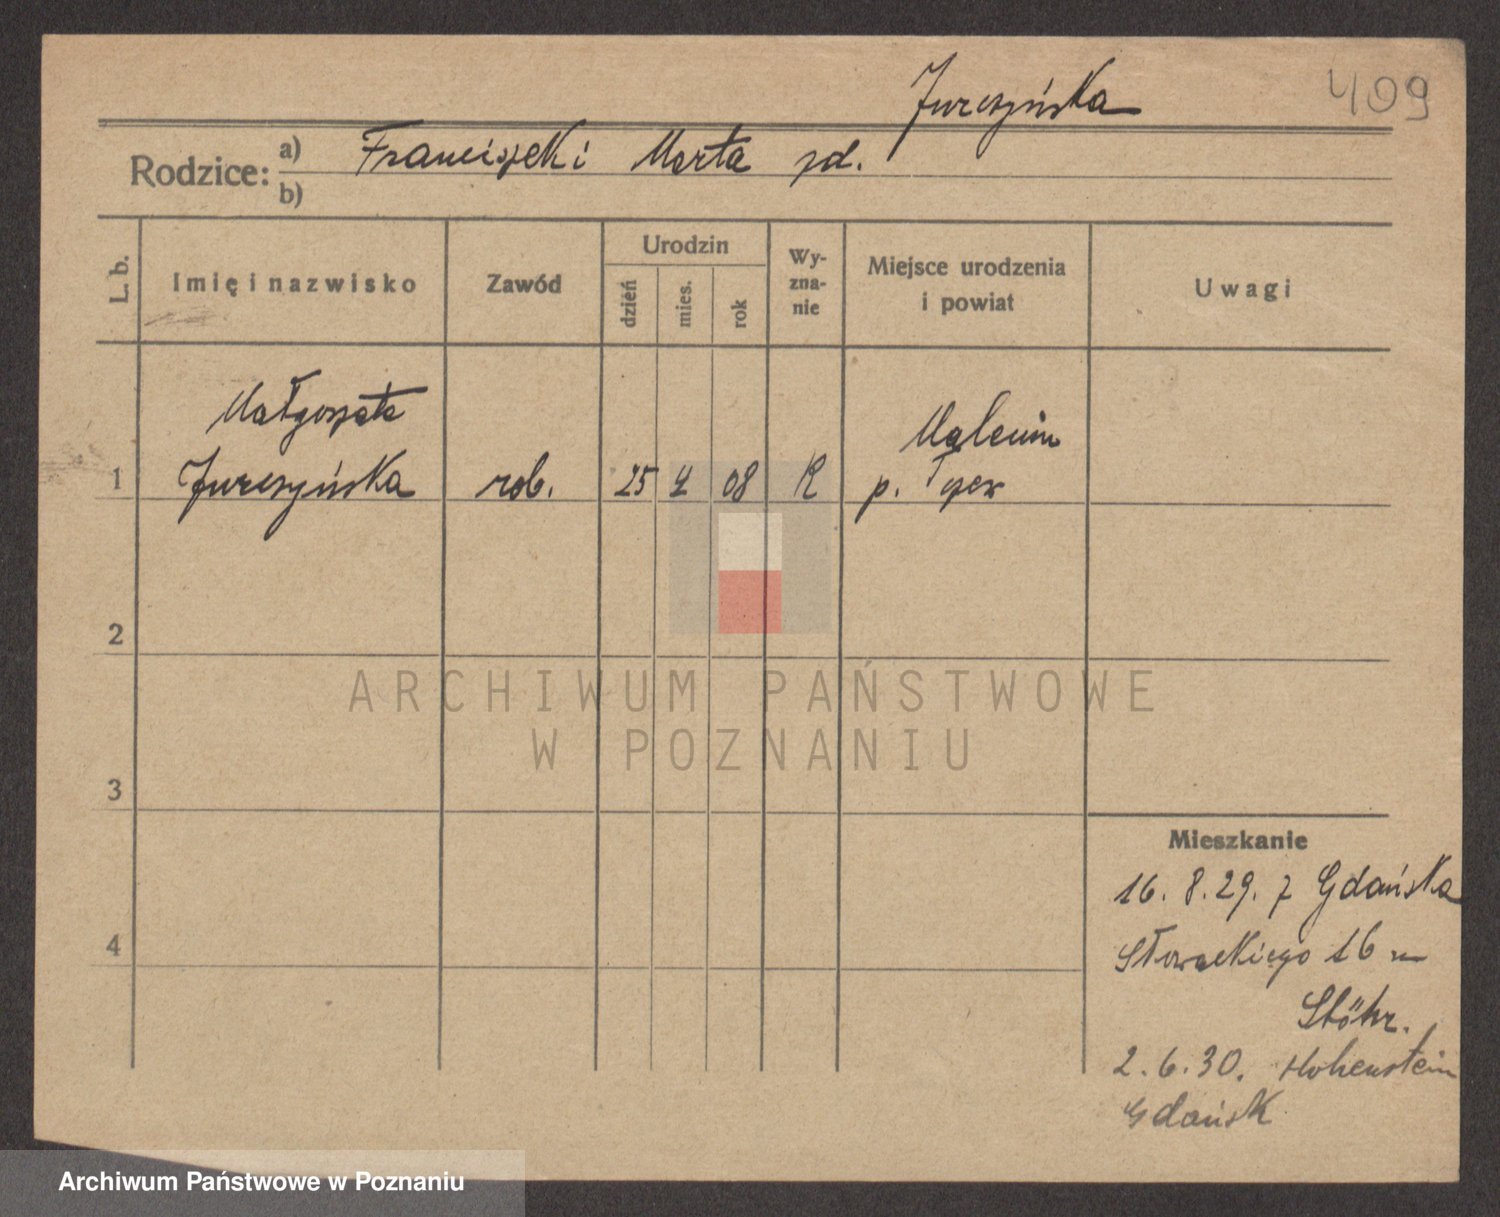 409
Jurczyńska
Rodzice: a) Franciszek i Marta zd.
b)
L. b.
Imię i nazwisko
Zawód
Urodzin
dzień
mies.
rok
Wy-
zna-
nie
Miejsce urodzenia
i powiat
Uwagi
Małgorzata
Malenin
1 Jurczyńska rob. 25 2 08 R p. Tczew
2
3
4
Mieszkanie
16. 8. 29. z Gdańska
Słowackiego 16 u
Stöhr.
2. 6. 30. Hohenstein
Gdańsk
ARCHIWUM PAŃSTWOWE
W POZNANIU
Archiwum Państwowe w Poznaniu